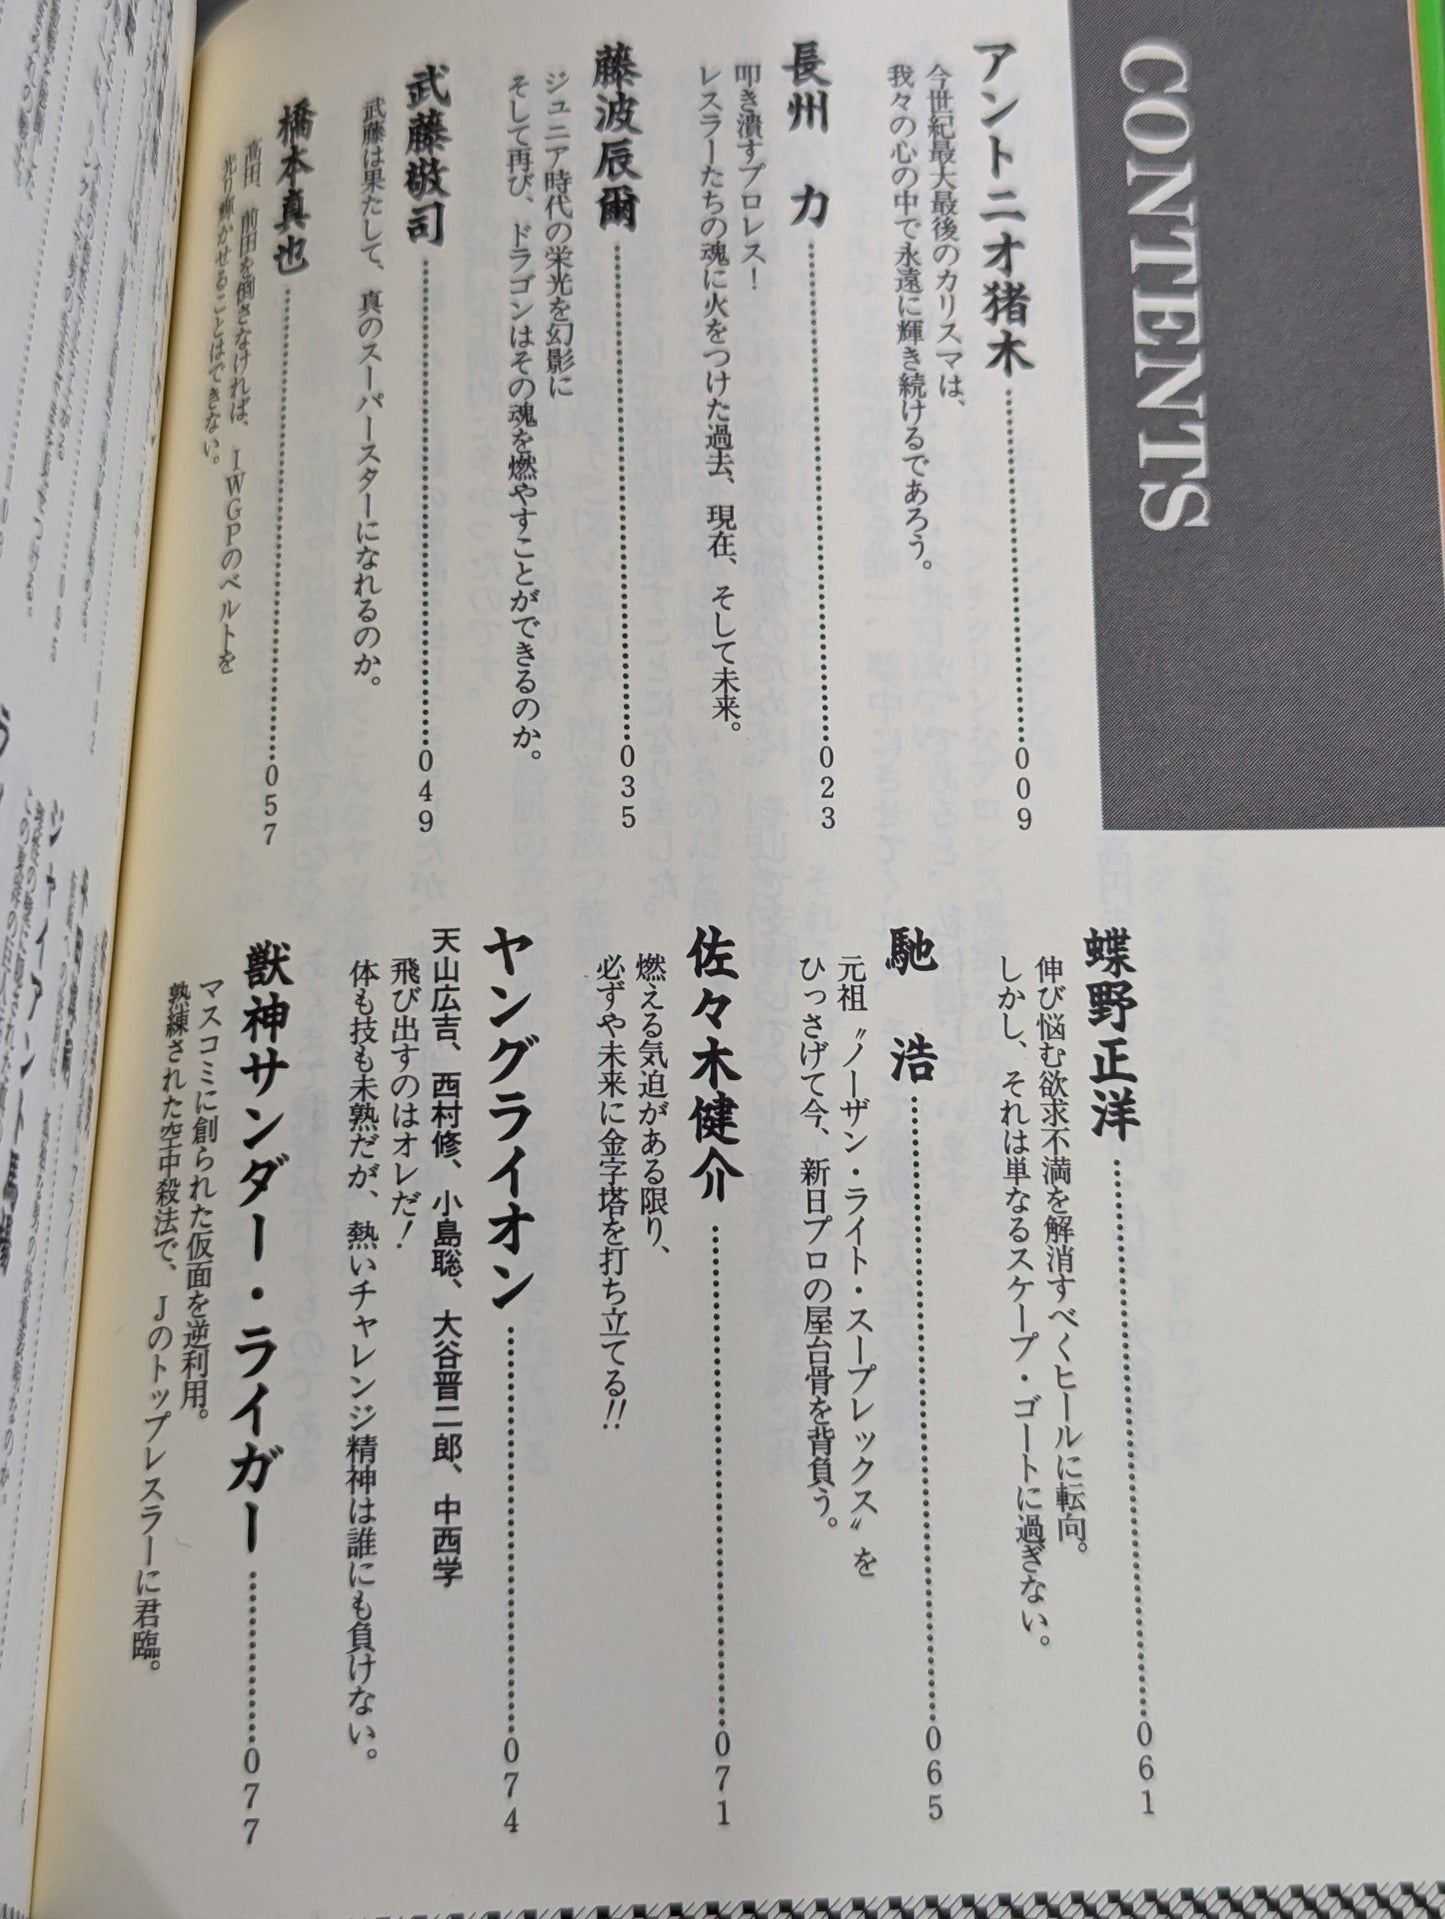 CONTENTS
アントニオ猪木……009
今世紀最大最後のカリスマは、
我々の心の中で永遠に輝き続けるであろう。
長州 力……023
叩き潰すプロレス！
レスラーたちの魂に火をつけた過去、現在、そして未来。
藤波辰爾……035
ジュニア時代の栄光を幻影に
そして再び、ドラゴンはその魂を燃やすことができるのか。
武藤敬司……049
武藤は果たして、真のスーパースターになれるのか。
橋本真也……057
高田、前田を倒さなければ、IWGPのベルトを
光り輝かせることはできない。
蝶野正洋……061
伸び悩む欲求不満を解消すべくヒールに転向。
しかし、それは単なるスケープ・ゴートに過ぎない。
馳 浩……065
元祖〝ノーザン・ライト・スープレックス〟を
ひっさげて今、新日プロの屋台骨を背負う。
佐々木健介……071
燃える気迫がある限り、
必ずや未来に金字塔を打ち立てる!!
ヤングライオン……074
天山広吉、西村修、小島聡、大谷晋二郎、中西学
飛び出すのはオレだ！
体も技も未熟だが、熱いチャレンジ精神は誰にも負けない。
獣神サンダー・ライガー……077
マスコミに創られた仮面を逆利用。
熟練された空中殺法で、Jのトップレスラーに君臨。